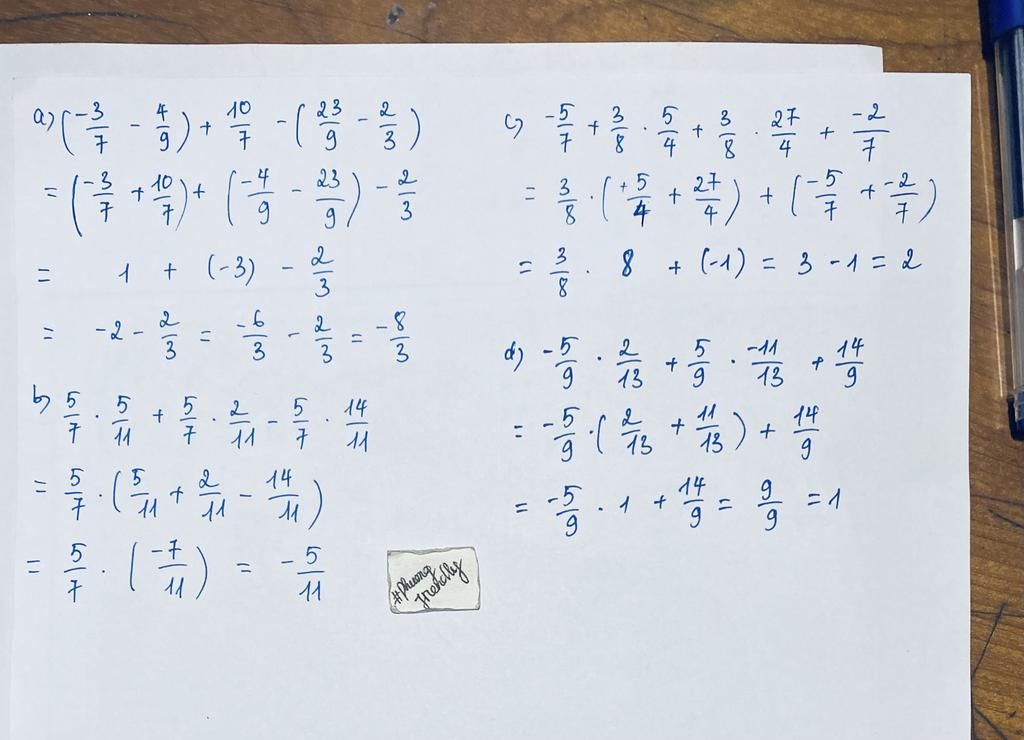 a) (-3/7 - 4/9) + 10/7 - (23/9 - 2/3)
= (-3/7 + 10/7) + (-4/9 - 23/9) - 2/3
= 1 + (-3) - 2/3
= -2 - 2/3 = -6/3 - 2/3 = -8/3
b) 5/7 . 5/11 + 5/7 . 2/11 - 5/7 . 14/11
= 5/7 . (5/11 + 2/11 - 14/11)
= 5/7 . (-7/11) = -5/11
#Phuong
friendly
c) -5/7 + 3/8 . 5/4 + 3/8 . 27/4 + -2/7
= 3/8 . (+5/4 + 27/4) + (-5/7 + -2/7)
= 3/8 . 8 + (-1) = 3 - 1 = 2
d) -5/9 . 2/13 + 5/9 . -11/13 + 14/9
= -5/9 . (2/13 + 11/13) + 14/9
= -5/9 . 1 + 14/9 = 9/9 = 1